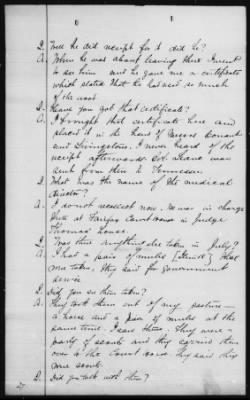 Q. Well he did receipt for it did he?
A. When he was about leaving there I went
to see him and he gave me a certificate
which stated that he had used so much
of the wood
Q. Have you got that certificate?
A. I brought that certificate here and
placed it in the hand of Messrs
and Livingstone. I never heard of the
receipt afterwards. Col. was
sent from then to Tennessee.
Q. What was the name of the medical
director?
A. I do not recollect now. He was in charge
there at Fairfax Court House in Judge
Thomas' house.
Q. Was there anything else taken in July?
A. I had a pair of mules that
was taken, they said for government
service
Q. Did you see them taken?
A. They took them out of my pasture—
a horse and a pair of mules at the
same time. I saw them. They were a
party of scouts and they carried them
over to the Court House. They said they
were scouts.
Q. Did you talk with them?